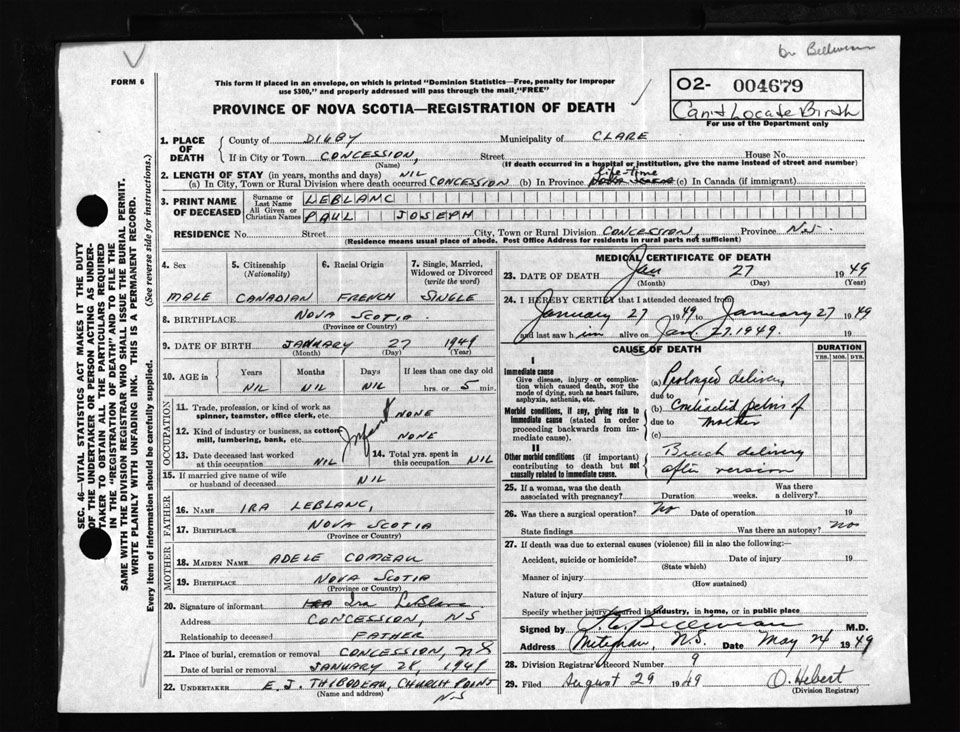 Dr Belliveau
FORM 6
This form if placed in an envelope, on which is printed "Dominion Statistics—Free, penalty for improper
use $300," and properly addressed will pass through the mail "FREE"
PROVINCE OF NOVA SCOTIA—REGISTRATION OF DEATH
O2- 004679
Can't Locate Birth
For use of the Department only
SEC. 46—VITAL STATISTICS ACT MAKES IT THE DUTY
OF THE UNDERTAKER OR PERSON ACTING AS UNDER-
TAKER TO OBTAIN ALL THE PARTICULARS REQUIRED
IN THE "REGISTRATION OF DEATH" AND TO FILE THE
SAME WITH THE DIVISION REGISTRAR WHO SHALL ISSUE THE BURIAL PERMIT.
WRITE PLAINLY WITH UNFADING INK. THIS IS A PERMANENT RECORD.
Every item of information should be carefully supplied. (See reverse side for instructions.)
1. PLACE OF DEATH
County of DIGBY Municipality of CLARE
If in City or Town CONCESSION, Street House No.
(Name) (If death occurred in a hospital or institution, give the name instead of street and number)
2. LENGTH OF STAY (in years, months and days) NIL life-time
(a) In City, Town or Rural Division where death occurred CONCESSION (b) In Province NOVA SCOTIA (c) In Canada (if immigrant)
3. PRINT NAME OF DECEASED
Surname or Last Name LEBLANC
All Given or Christian Names PAUL JOSEPH
RESIDENCE No. Street City, Town or Rural Division CONCESSION, Province N.S.
(Residence means usual place of abode. Post Office Address for residents in rural parts not sufficient)
4. Sex 5. Citizenship (Nationality) 6. Racial Origin 7. Single, Married, Widowed or Divorced (write the word)
MALE CANADIAN FRENCH SINGLE
8. BIRTHPLACE NOVA SCOTIA
(Province or Country)
9. DATE OF BIRTH JANUARY 27 1949
(Month) (Day) (Year)
10. AGE in Years Months Days If less than one day old
NIL NIL NIL hrs. or 5 min.
OCCUPATION
11. Trade, profession, or kind of work as
spinner, teamster, office clerk, etc. NONE
12. Kind of industry or business, as cotton
mill, lumbering, bank, etc. NONE
Infant
13. Date deceased last worked
at this occupation NIL
14. Total yrs. spent in
this occupation NIL
15. If married give name of wife
or husband of deceased NIL
FATHER
16. NAME IRA LEBLANC,
17. BIRTHPLACE NOVA SCOTIA
(Province or Country)
MOTHER
18. MAIDEN NAME ADELE COMEAU
19. BIRTHPLACE NOVA SCOTIA
(Province or Country)
20. Signature of informant IRA Ira LeBlanc
Address CONCESSION, NS
Relationship to deceased FATHER
21. Place of burial, cremation or removal CONCESSION, NS
Date of burial or removal JANUARY 28, 1949
22. UNDERTAKER E. J. THIBODEAU, CHURCH POINT
(Name and address) NS
MEDICAL CERTIFICATE OF DEATH
23. DATE OF DEATH Jan 27 1949
(Month) (Day) (Year)
24. I HEREBY CERTIFY that I attended deceased from
January 27 1949 to January 27 1949
and last saw him alive on Jan. 27. 1949. 19
CAUSE OF DEATH
DURATION
YRS. MOS. DYS.
I
Immediate cause
Give disease, injury or complica-
tion which caused death, NOT the
mode of dying, such as heart failure,
asphyxia, asthenia, etc.
(a) Prolonged delivery
due to
Morbid conditions, if any, giving rise to
immediate cause (stated in order
proceeding backwards from im-
mediate cause).
(b) Contracted pelvis of
due to mother
(c)
II
Other morbid conditions (if important)
contributing to death but not causally
related to immediate cause.
Breech delivery
after version
25. If a woman, was the death
associated with pregnancy? Duration weeks. Was there
a delivery?
26. Was there a surgical operation? No
State findings Was there an autopsy? no
27. If death was due to external causes (violence) fill in also the following:—
Accident, suicide or homicide? Date of injury 19
(State which)
Manner of injury
(How sustained)
Nature of injury
Specify whether injury occurred in industry, in home, or in public place
Signed by Belliveau M.D.
Address Meteghan, N.S. Date May 24 1949
28. Division Registrar's Record Number 9
29. Filed August 29 1949 O. Hebert
(Division Registrar)